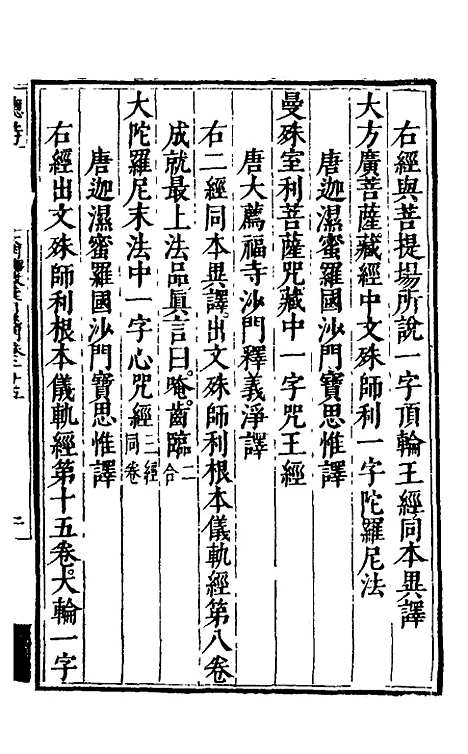 右經與菩提場所說一字頂輪王經同本異譯
大方廣菩薩藏經中文殊師利一字陀羅尼法
唐迦濕蜜羅國沙門寶思惟譯
曼殊室利菩薩咒藏中一字咒王經
唐大薦福寺沙門釋義淨譯
右二經同本異譯。出文殊師利根本儀軌經第八卷
成就最上法品眞言曰。唵。齒臨二合
大陀羅尼末法中一字心咒經三經同卷
唐迦濕蜜羅國沙門寶思惟譯
右經出文殊師利根本儀軌經第十五卷。大輪一字